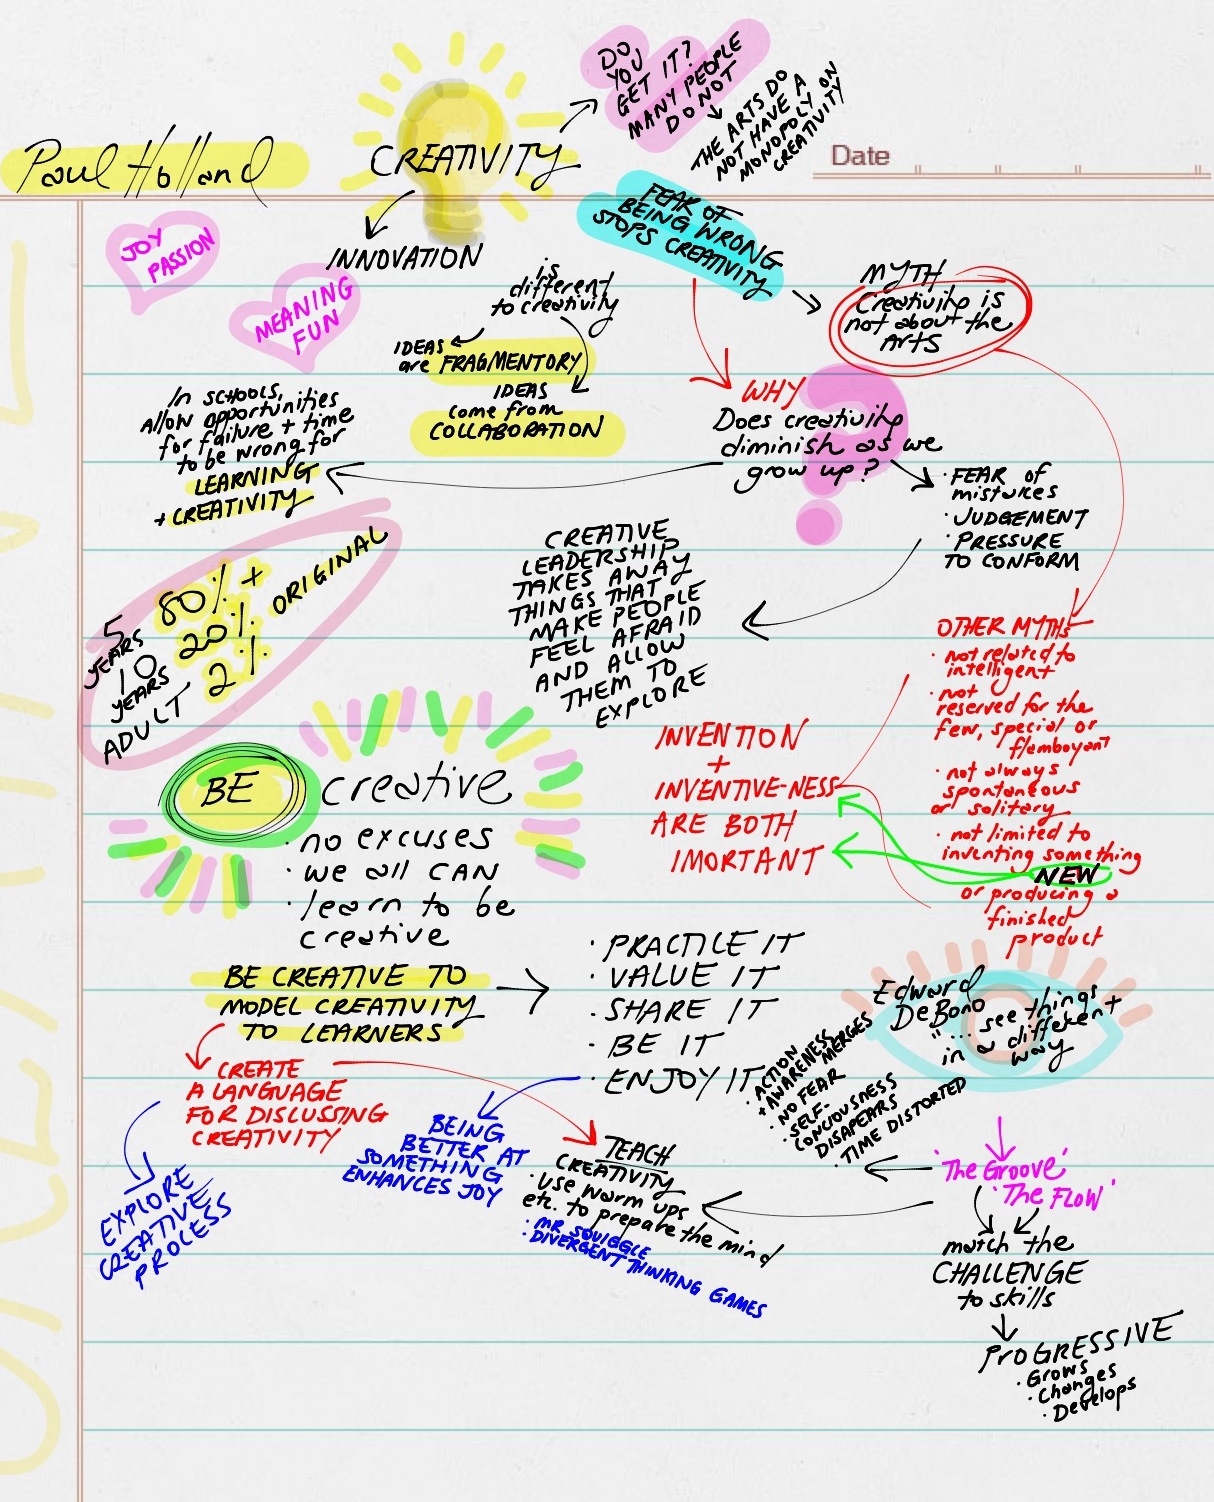 Paul Holland
CREATIVITY
DO
YOU
GET IT?
MANY PEOPLE
DO NOT
THE ARTS DO
NOT HAVE A
MONOPOLY ON
CREATIVITY
Date
JOY
PASSION
MEANING
FUN
INNOVATION
is
different
to creativity
IDEAS
are FRAGMENTORY
IDEAS
come from
COLLABORATION
FEAR OF
BEING WRONG
STOPS CREATIVITY
MYTH
Creativity is
not about the
ARTS
WHY
Does creativity
diminish as we
grow up?
In SCHOOLS,
allow opportunities
for failure + time
to be wrong for
LEARNING
+ CREATIVITY
· FEAR of
mistakes
· JUDGEMENT
· PRESSURE
TO CONFORM
5 YEARS 80% +
10 YEARS 20% ORIGINAL
ADULT 2%
CREATIVE
LEADERSHIP
TAKES AWAY
THINGS THAT
MAKE PEOPLE
FEEL AFRAID
AND ALLOW
THEM TO
EXPLORE
OTHER MYTHS
· not related to
intelligent
· not
reserved for the
few, special or
flamboyant
· not always
spontaneous
or solitary
· not limited to
inventing something
NEW
or producing a
finished
product
INVENTION
+
INVENTIVE-NESS
ARE BOTH
IMORTANT
BE creative
· no excuses
· we all CAN
· learn to be
creative
BE CREATIVE TO
MODEL CREATIVITY
TO LEARNERS
· PRACTICE IT
· VALUE IT
· SHARE IT
· BE IT
· ENJOY IT
Edward
DeBono
"... see things
in a different
way
· ACTION
+ AWARENESS
MERGES
· NO FEAR
· SELF-
CONCIOUSNESS
DISAPEARS
· TIME DISTORTED
CREATE
A LANGUAGE
FOR DISCUSSING
CREATIVITY
BEING
BETTER AT
SOMETHING
ENHANCES JOY
EXPLORE
CREATIVE
PROCESS
TEACH
CREATIVITY
· use warm ups
etc. to prepare the mind
· MR SQUIGGLE
· DIVERGENT THINKING GAMES
'The Groove'
'The FLOW'
match the
CHALLENGE
to skills
PROGRESSIVE
· Grows
· Changes
· Develops